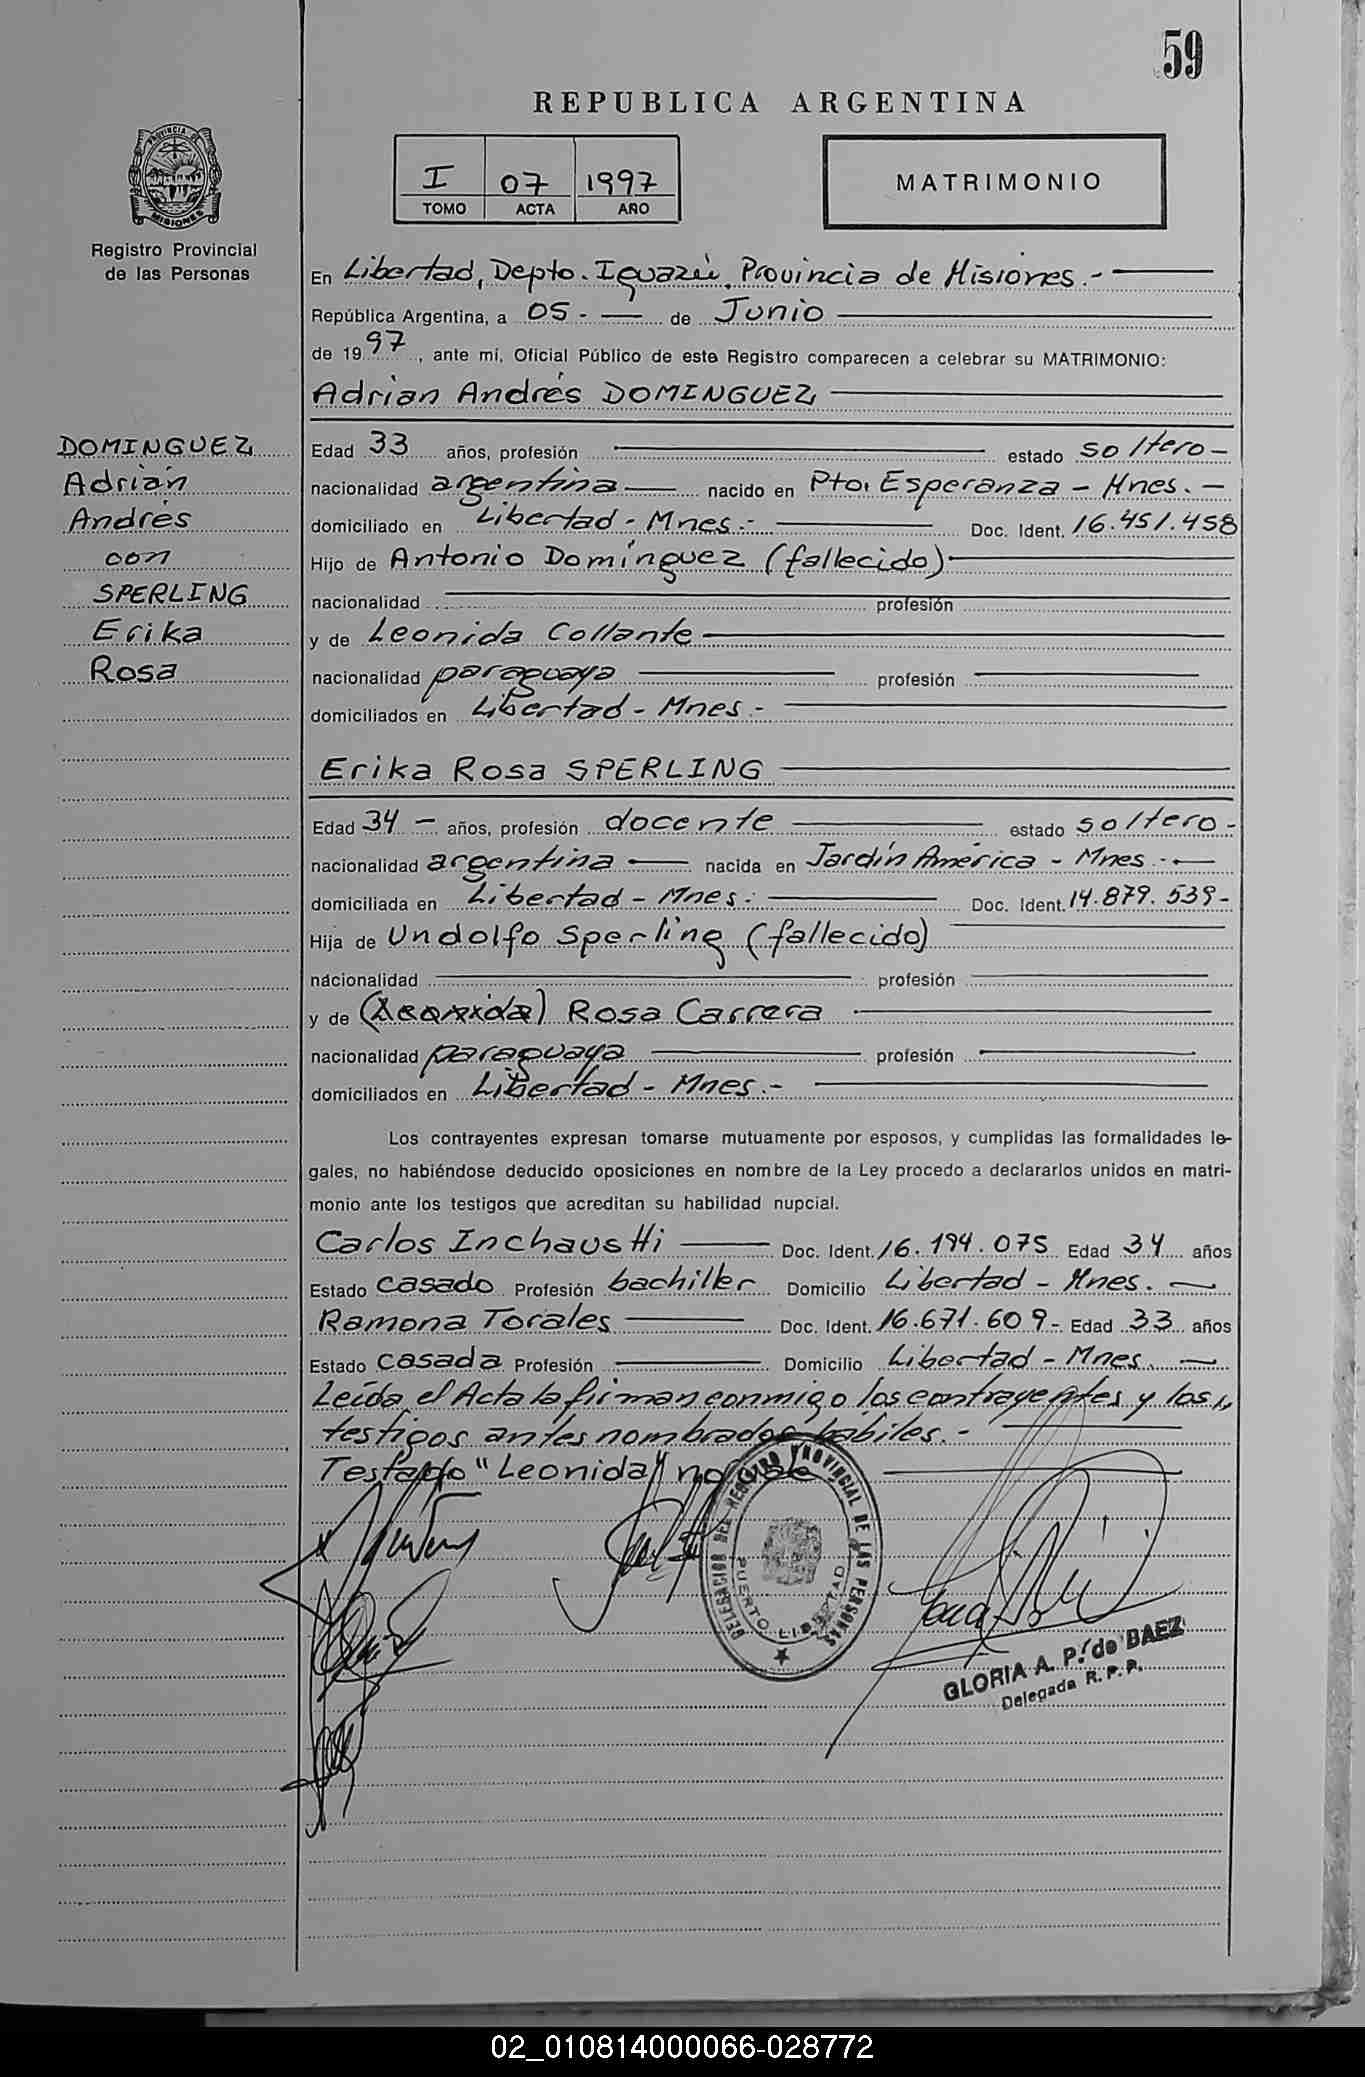 59
REPUBLICA ARGENTINA
I 07 1997
TOMO ACTA AÑO
MATRIMONIO
PROVINCIA DE MISIONES
Registro Provincial
de las Personas
En Libertad, Depto. Iguazú, Provincia de Misiones.-
República Argentina, a 05.- de Junio
de 1997, ante mí, Oficial Público de este Registro comparecen a celebrar su MATRIMONIO:
Adrian Andrés DOMINGUEZ
DOMINGUEZ
Adrián
Andrés
con
SPERLING
Erika
Rosa
Edad 33 años, profesión estado soltero-
nacionalidad argentina nacido en Pto. Esperanza - Mnes.-
domiciliado en Libertad - Mnes.- Doc. Ident. 16.451.458
Hijo de Antonio Domínguez (fallecido)
nacionalidad profesión
y de Leonida Collante
nacionalidad paraguaya profesión
domiciliados en Libertad - Mnes.-
Erika Rosa SPERLING
Edad 34 - años, profesión docente estado soltero-
nacionalidad argentina nacida en Jardín América - Mnes.-
domiciliada en Libertad - Mnes.- Doc. Ident. 14.879.539-
Hija de Undolfo Sperling (fallecido)
nacionalidad profesión
y de (Leonida) Rosa Carrera
nacionalidad paraguaya profesión
domiciliados en Libertad - Mnes.-
Los contrayentes expresan tomarse mutuamente por esposos, y cumplidas las formalidades le-
gales, no habiéndose deducido oposiciones en nombre de la Ley procedo a declararlos unidos en matri-
monio ante los testigos que acreditan su habilidad nupcial.
Carlos Inchausti Doc. Ident. 16.194.075 Edad 34 años
Estado casado Profesión bachiller Domicilio Libertad - Mnes.
Ramona Torales Doc. Ident. 16.671.609- Edad 33 años
Estado casada Profesión Domicilio Libertad - Mnes.
Leída el Acta la firman conmigo los contrayentes y los
testigos antes nombrados hábiles.-
Testado "Leonida" no vale
DELEGACION DEL REGISTRO PROVINCIAL DE LAS PERSONAS
PUERTO LIBERTAD
GLORIA A. P. de BAEZ
Delegada R. P. P.
02_010814000066-028772